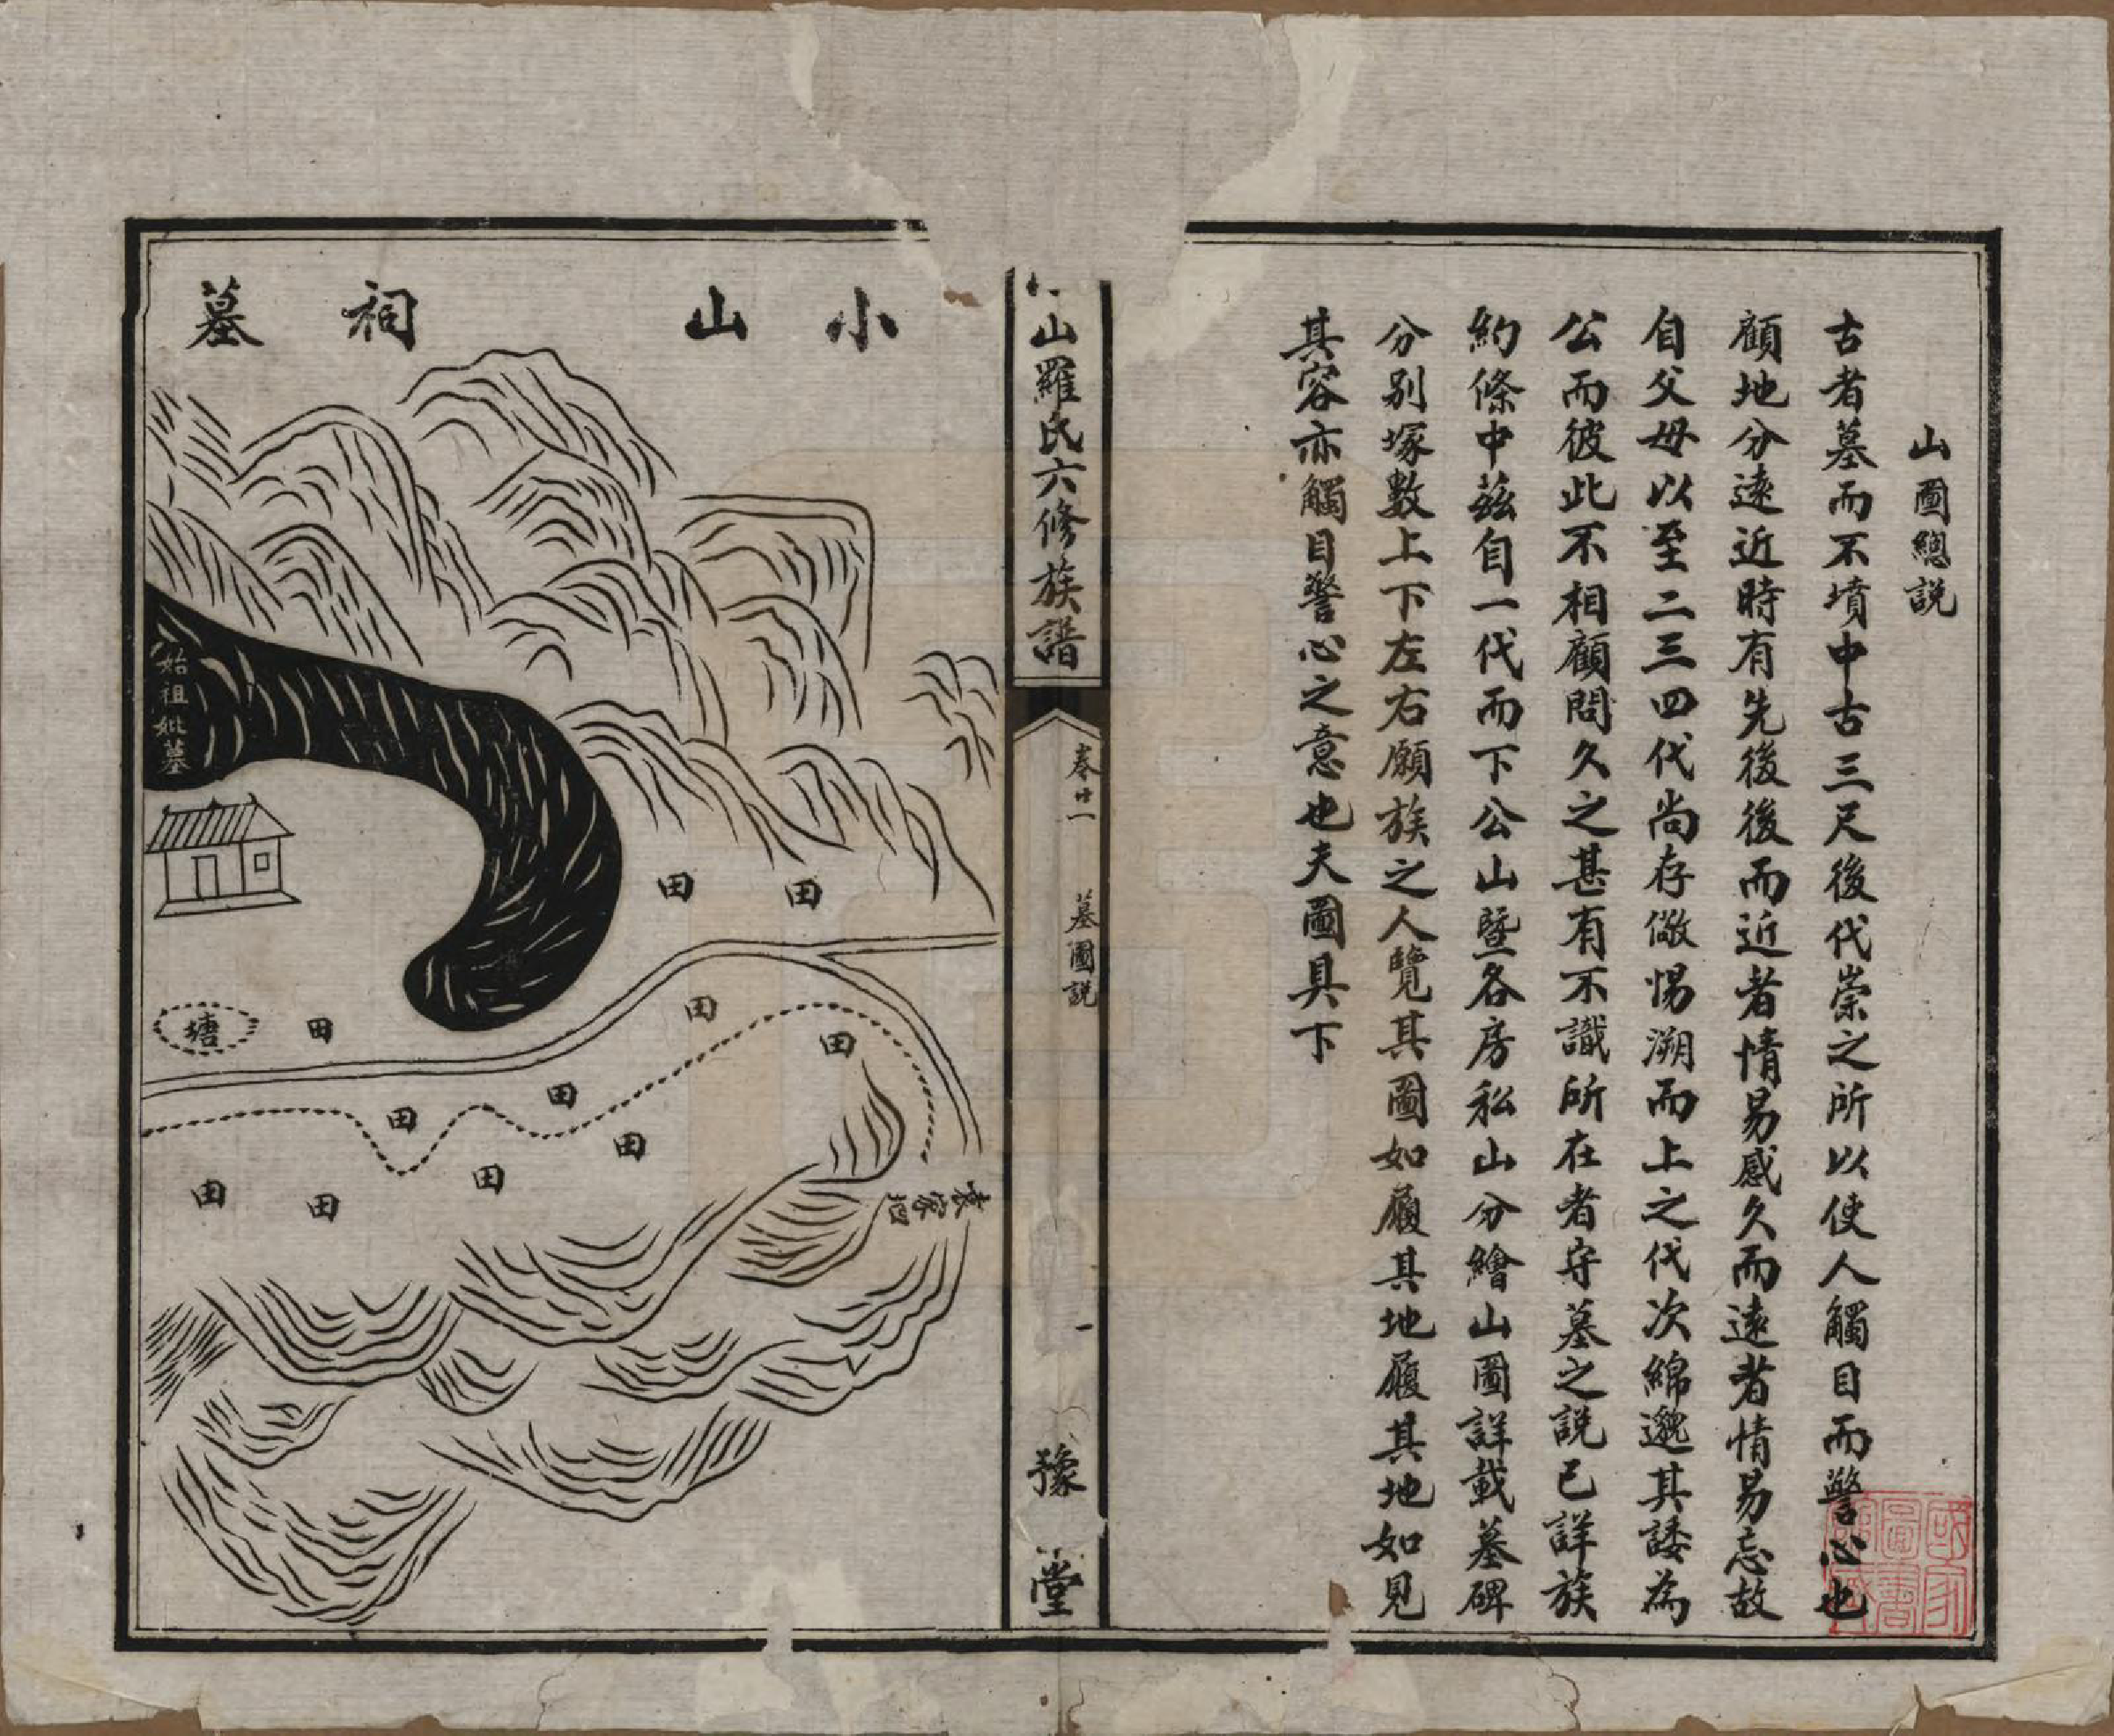 山圖總説
古者墓而不墳中古三尺後代崇之所以使人觸目而警心也
顧地分遠近時有先後後而近者情易感久而遠者情易忘故
自父母以至二三四代尚存儆惕溯而上之代次綿邈其諉為
公而彼此不相顧問久之甚有不識所在者守墓之説已詳族
約條中茲自一代而下公山暨各房私山分繪山圖詳載墓碑
分別塚數上下左右願族之人覽其圖如履其地履其地如見
其容亦觸目警心之意也夫圖具下
山羅氏六修族譜
卷廿一 墓圖説
一
豫 堂
小山祠墓
始祖妣墓
塘
田
田
田
田
田
田
田
田
田
田
田
袁家地